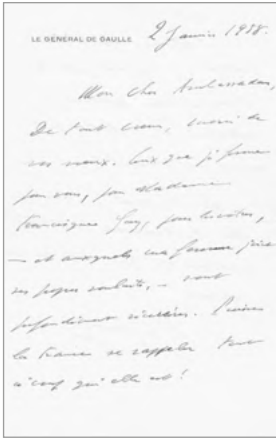 LE GÉNÉRAL DE GAULLE
2 Janvier 1958.
Mon cher Ambassadeur,
De tout cœur, merci de
vos vœux. Ceux que je forme
pour vous, pour Madame
Francisque Gay, pour les vôtres,
— et auxquels ma femme joint
ses propres souhaits, — sont
profondément sincères. Puisse
la France se rappeler tout
à coup qui elle est !